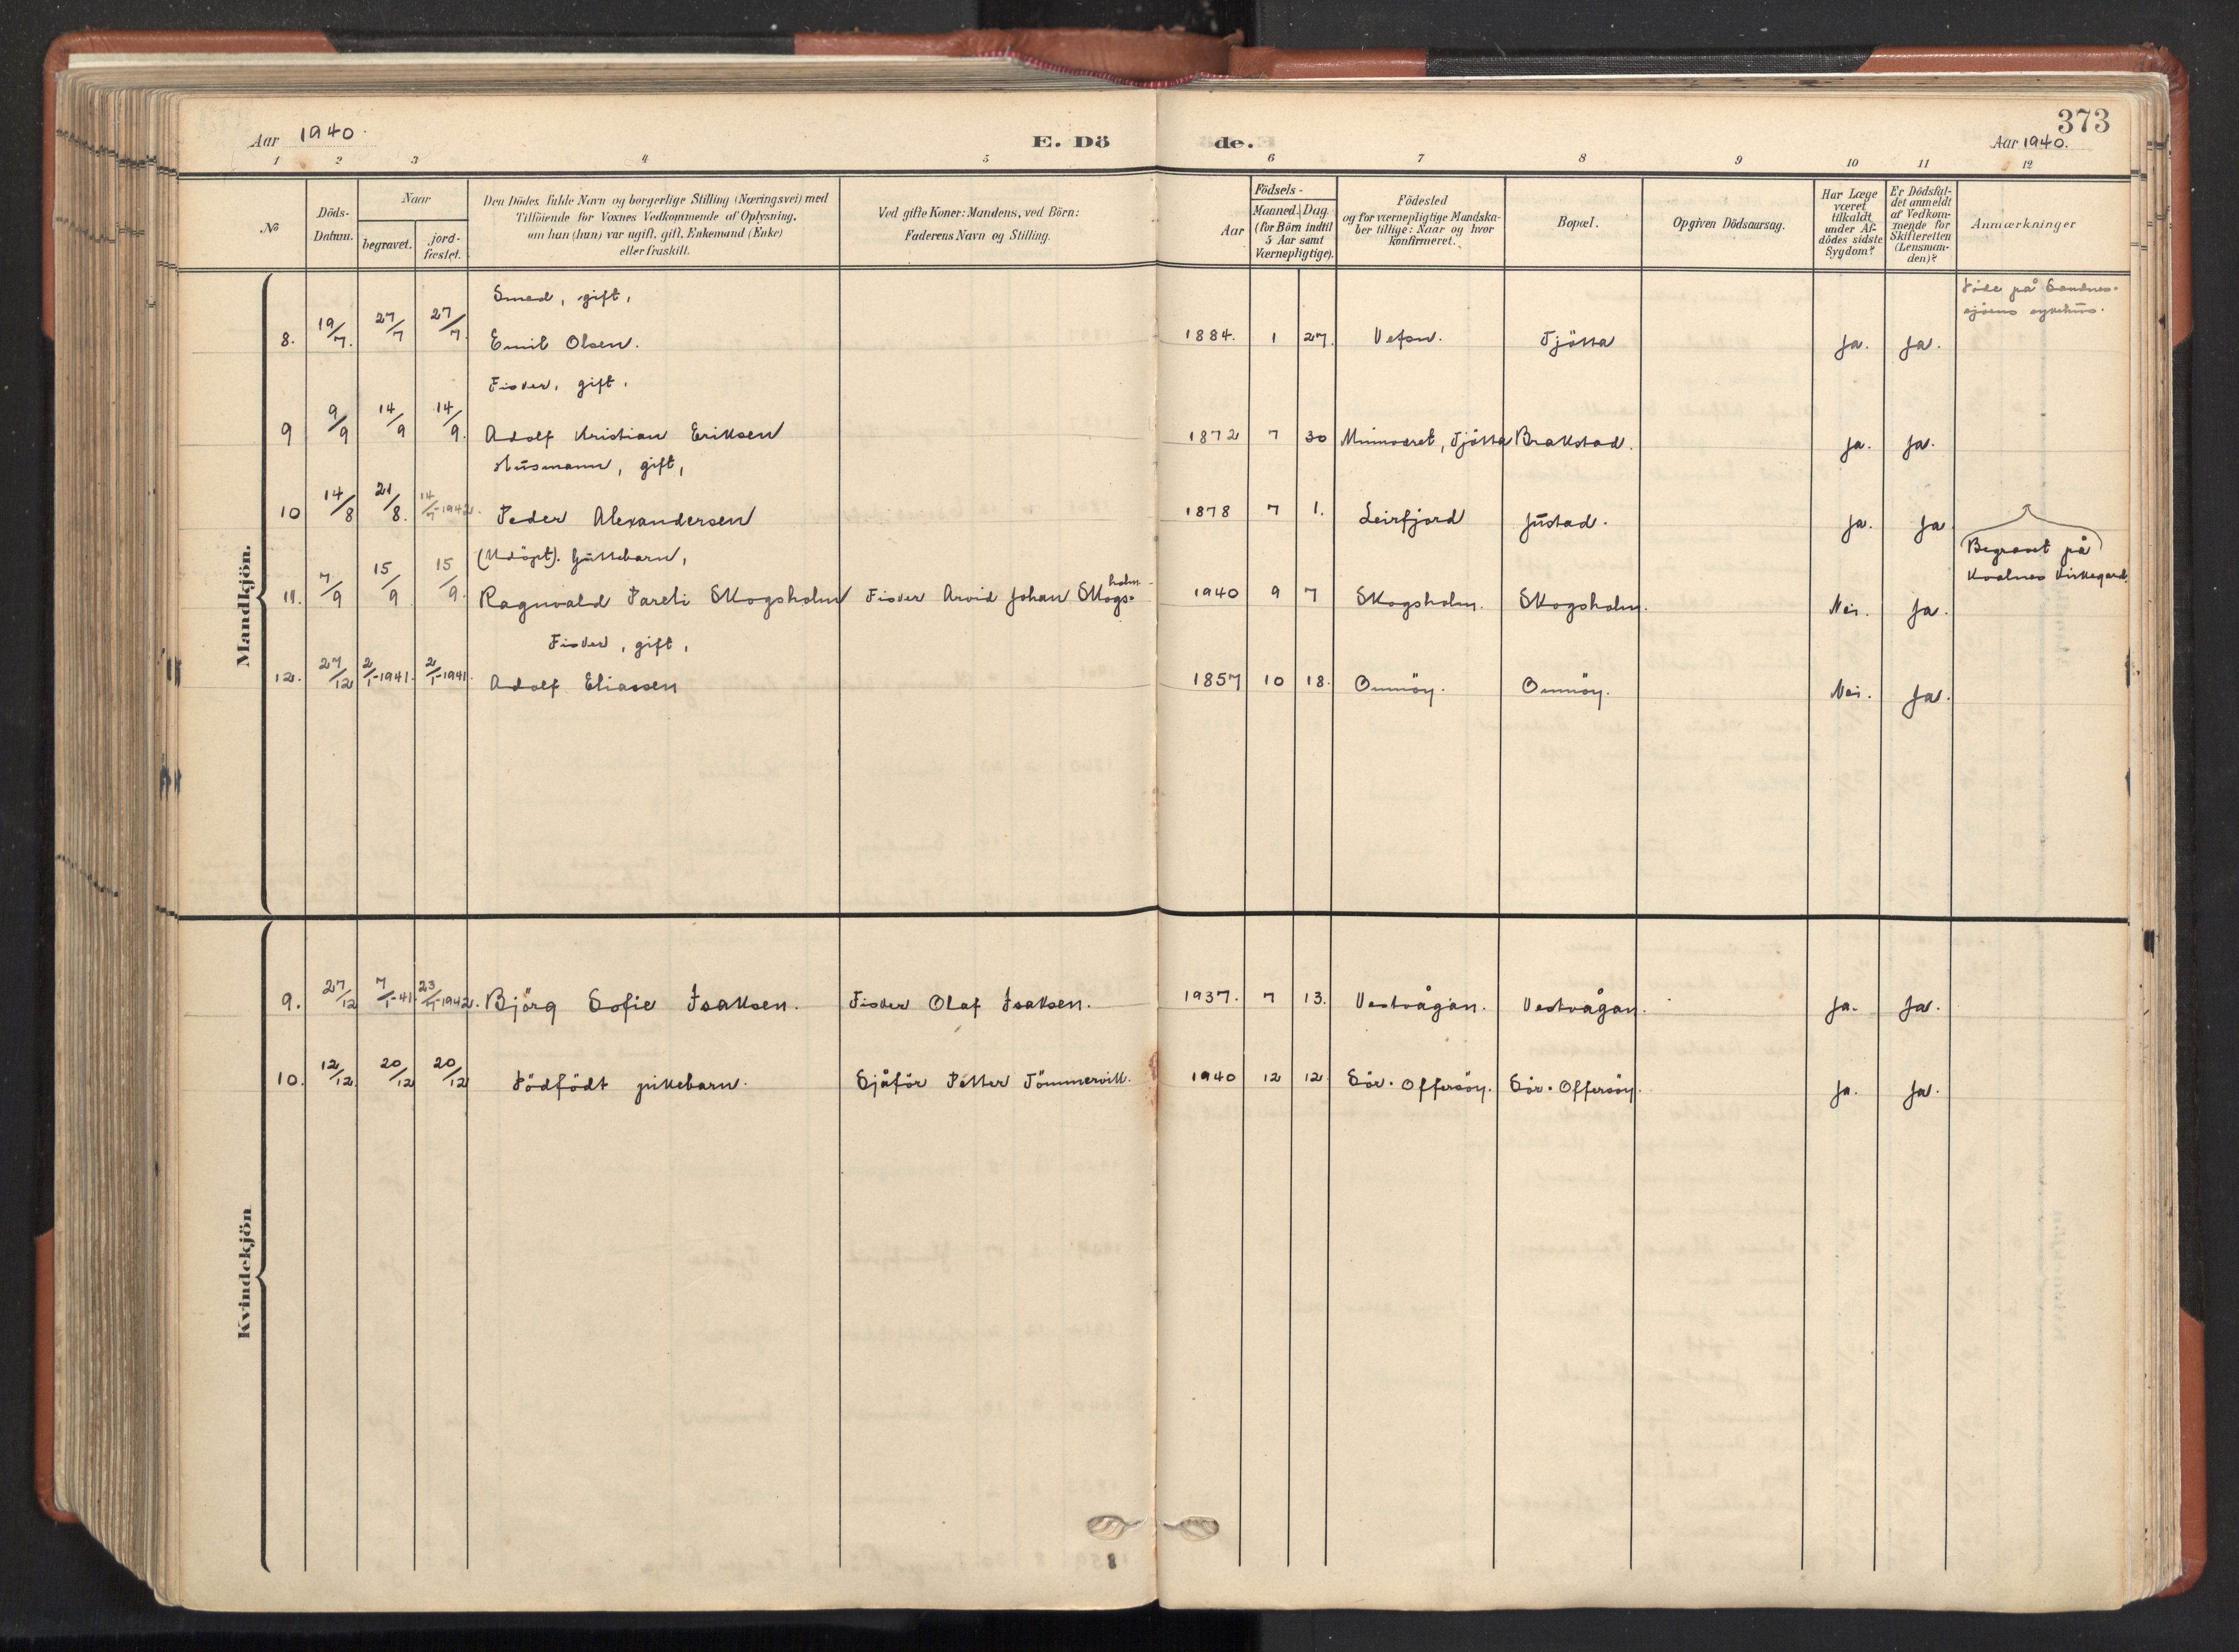 373
Aar 1940.
E. Dö
de.
Aar 1940.
1 2 3 4 5 6 7 8 9 10 11 12
No
Döds-
Datum.
Naar
begravet.
jord-
fæstet.
Den Dödes fulde Navn og borgerlige Stilling (Næringsvei) med
Tilföiende for Voxnes Vedkommende af Oplysning,
om han (hun) var ugift, gift, Enkemand (Enke)
eller fraskilt.
Ved gifte Koner: Mandens, ved Börn:
Faderens Navn og Stilling.
Födsels-
Aar
Maaned. Dag
(for Börn indtil
5 Aar samt
Værnepligtige).
Födested
og for værnepligtige Mandska-
ber tillige: Naar og hvor
konfirmeret.
Bopæl.
Opgiven Dödsaarsag.
Har Læge
været
tilkaldt
under Af-
dödes sidste
Sygdom?
Er Dödsfal-
det anmeldt
af Vedkom-
mende for
Skifteretten
(Lensman-
den)?
Anmærkninger
Mandkjön.
Smed, gift,
Döde på Sandnes-
sjøens sykehus.
8. 19/7. 27/7 27/7. Emil Olsen. 1884. 1 27. Vefsn. Tjötta ja. ja.
Fisker, gift,
9 9/9 14/9 14/9. Adolf Kristian Eriksen 1872 7 30 Minnværet, Tjötta Brakstad. ja. ja.
Husmann, gift,
10 14/8 21/8. 14/7-1942. Peder Alexandersen 1878 7 1. Leirfjord justad. ja. ja
Begravet på
Kvalnes Kirkegard.
(Udöpt). Guttebarn,
11. 7/9 15/9 15/9. Ragnvald Pareli Skogsholm Fisker Arvid Johan Skogs-holm 1940 9 7 Skogsholm. Skogsholm. Nei. ja.
Fisker, gift,
12. 27/12 2/1-1941. 2/1-1941. Adolf Eliassen 1857 10 18. Omnöy. Omnöy. Nei. ja.
Kvindekjön
9. 27/12 7/1-41. 23/7-1942. Björg Sofie Isaksen. Fisker Olaf Isaksen. 1937. 7 13. Vestvågan. Vestvågan. ja. ja.
10. 12/12. 20/12 20/12 Dödfödt pikebarn. Sjåför Petter Tömmervik. 1940 12 12 Sör-Offersöy. Sör-Offersöy. ja. ja.